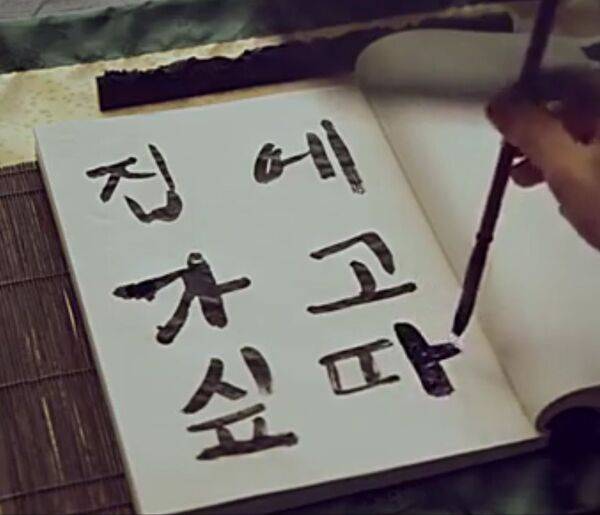 집에
가고
싶마